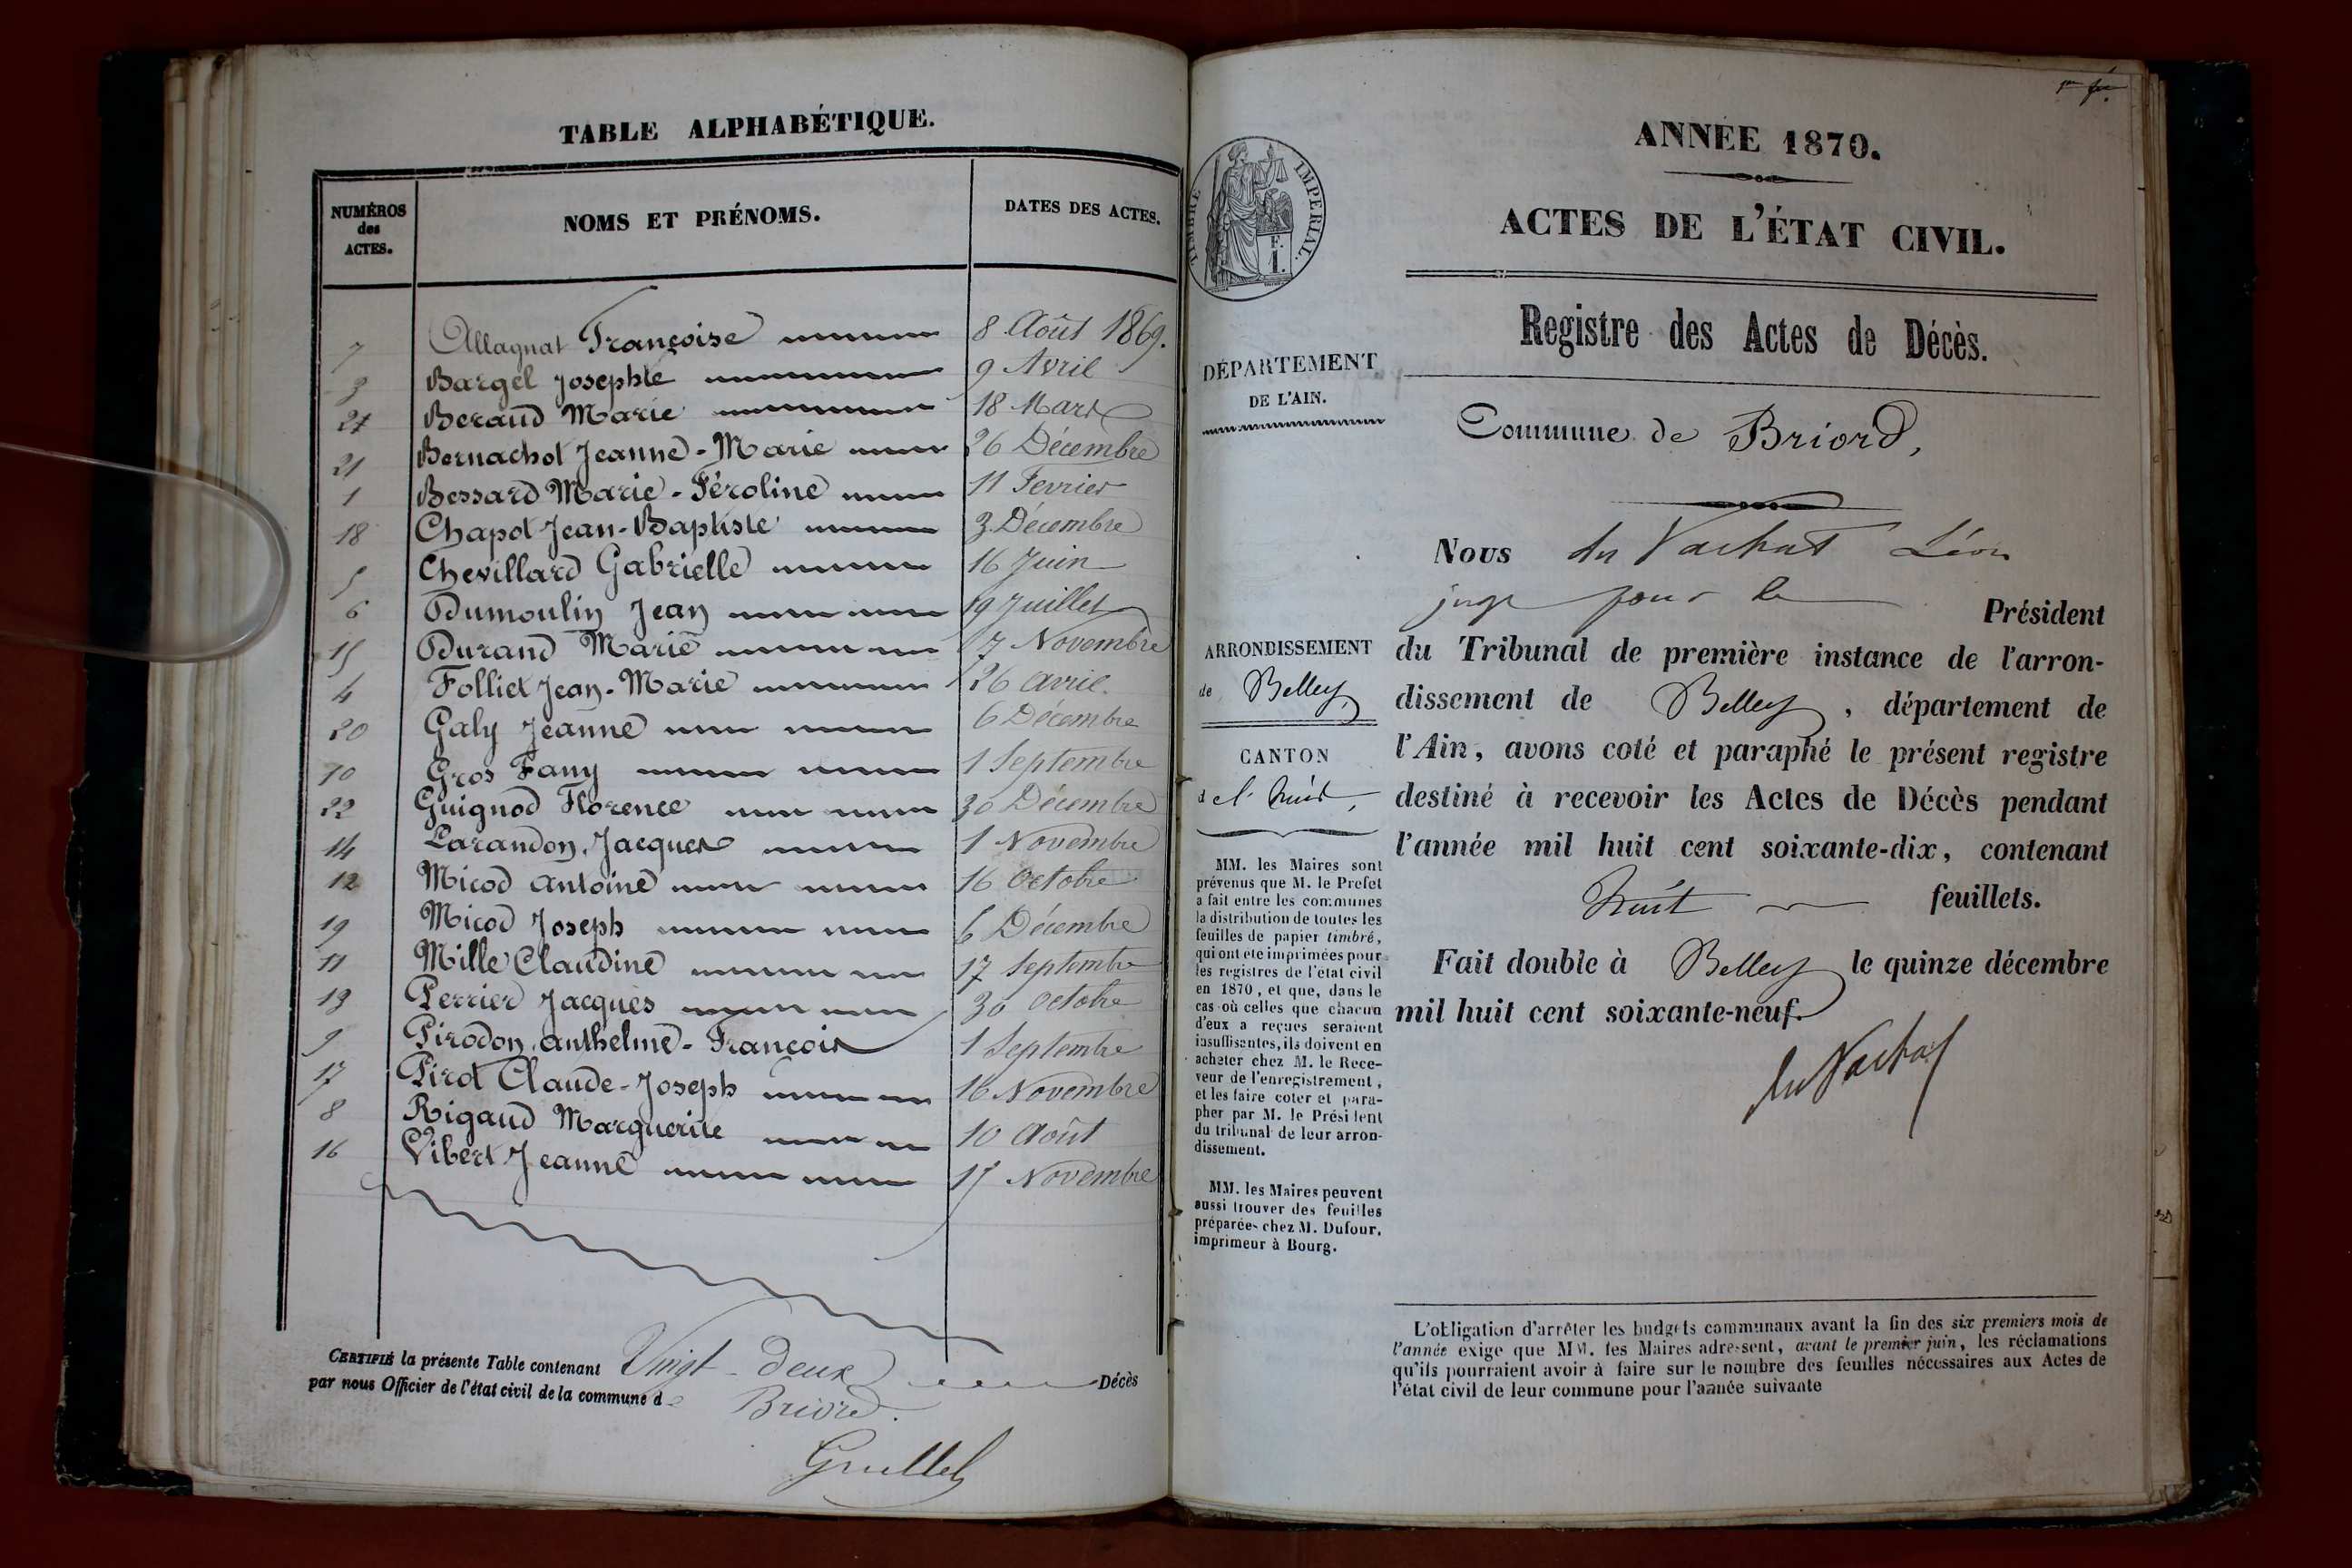 TABLE ALPHABÉTIQUE.
NUMÉROS des ACTES.
NOMS ET PRÉNOMS.
DATES DES ACTES.
7 Allagnat Françoise 8 Août 1869.
3 Bargel Josephte 9 Avril
2 Beraud Marie 18 Mars
21 Bernachot Jeanne-Marie 26 Décembre
1 Bessard Marie-Féroline 11 Fevrier
18 Chapot Jean-Baptiste 3 Décembre
5 Chevillard Gabrielle 16 Juin
6 Dumoulin Jean 19 Juillet
15 Durand Marie 7 Novembre
4 Folliet Jean-Marie 26 avril.
20 Galy Jeanne 6 Décembre
10 Gros Fany 1 Septembre
22 Guignod Florence 30 Décembre
14 Larandon, Jacques 1 Novembre
12 Micod antoine 16 Octobre
19 Micod Joseph 6 Décembre
11 Mille Claudine 17 Septembre
13 Perrier Jacques 30 Octobre
9 Pirodon, anthelme-François 1 Septembre
17 Pirot Claude-Joseph 16 Novembre
8 Rigaud Marguerite 10 Août
16 Vibert Jeanne 15 Novembre
CERTIFIÉ la présente Table contenant Vingt-deux Décès
par nous Officier de l'état civil de la commune de Briord.
Grullet
TIMBRE IMPÉRIAL.
F.
I.
DÉPARTEMENT
DE L'AIN.
ARRONDISSEMENT
de Belley
CANTON
de l'huis,
MM. les Maires sont
prévenus que M. le Prefet
a fait entre les communes
la distribution de toutes les
feuilles de papier timbré,
qui ont ete imprimées pour
les registres de l'état civil
en 1870, et que, dans le
cas où celles que chacun
d'eux a reçues seraient
insuffisantes, ils doivent en
acheter chez M. le Rece-
veur de l'enregistrement,
et les faire coter et para-
pher par M. le Président
du tribunal de leur arron-
dissement.
MM. les Maires peuvent
aussi trouver des feuilles
préparées chez M. Dufour,
imprimeur à Bourg.
ANNÉE 1870.
ACTES DE L'ÉTAT CIVIL.
Registre des Actes de Décès.
Commune de Briord,
Nous du Vachat Léon
juge pour le Président
du Tribunal de première instance de l'arron-
dissement de Belley, département de
l'Ain, avons coté et paraphé le présent registre
destiné à recevoir les Actes de Décès pendant
l'année mil huit cent soixante-dix, contenant
huit feuillets.
Fait double à Belley le quinze décembre
mil huit cent soixante-neuf.
du Vachat
L'obligation d'arrêter les budgets communaux avant la fin des six premiers mois de
l'année exige que MM. les Maires adressent, avant le premier juin, les réclamations
qu'ils pourraient avoir à faire sur le nombre des feuilles nécessaires aux Actes de
l'état civil de leur commune pour l'année suivante